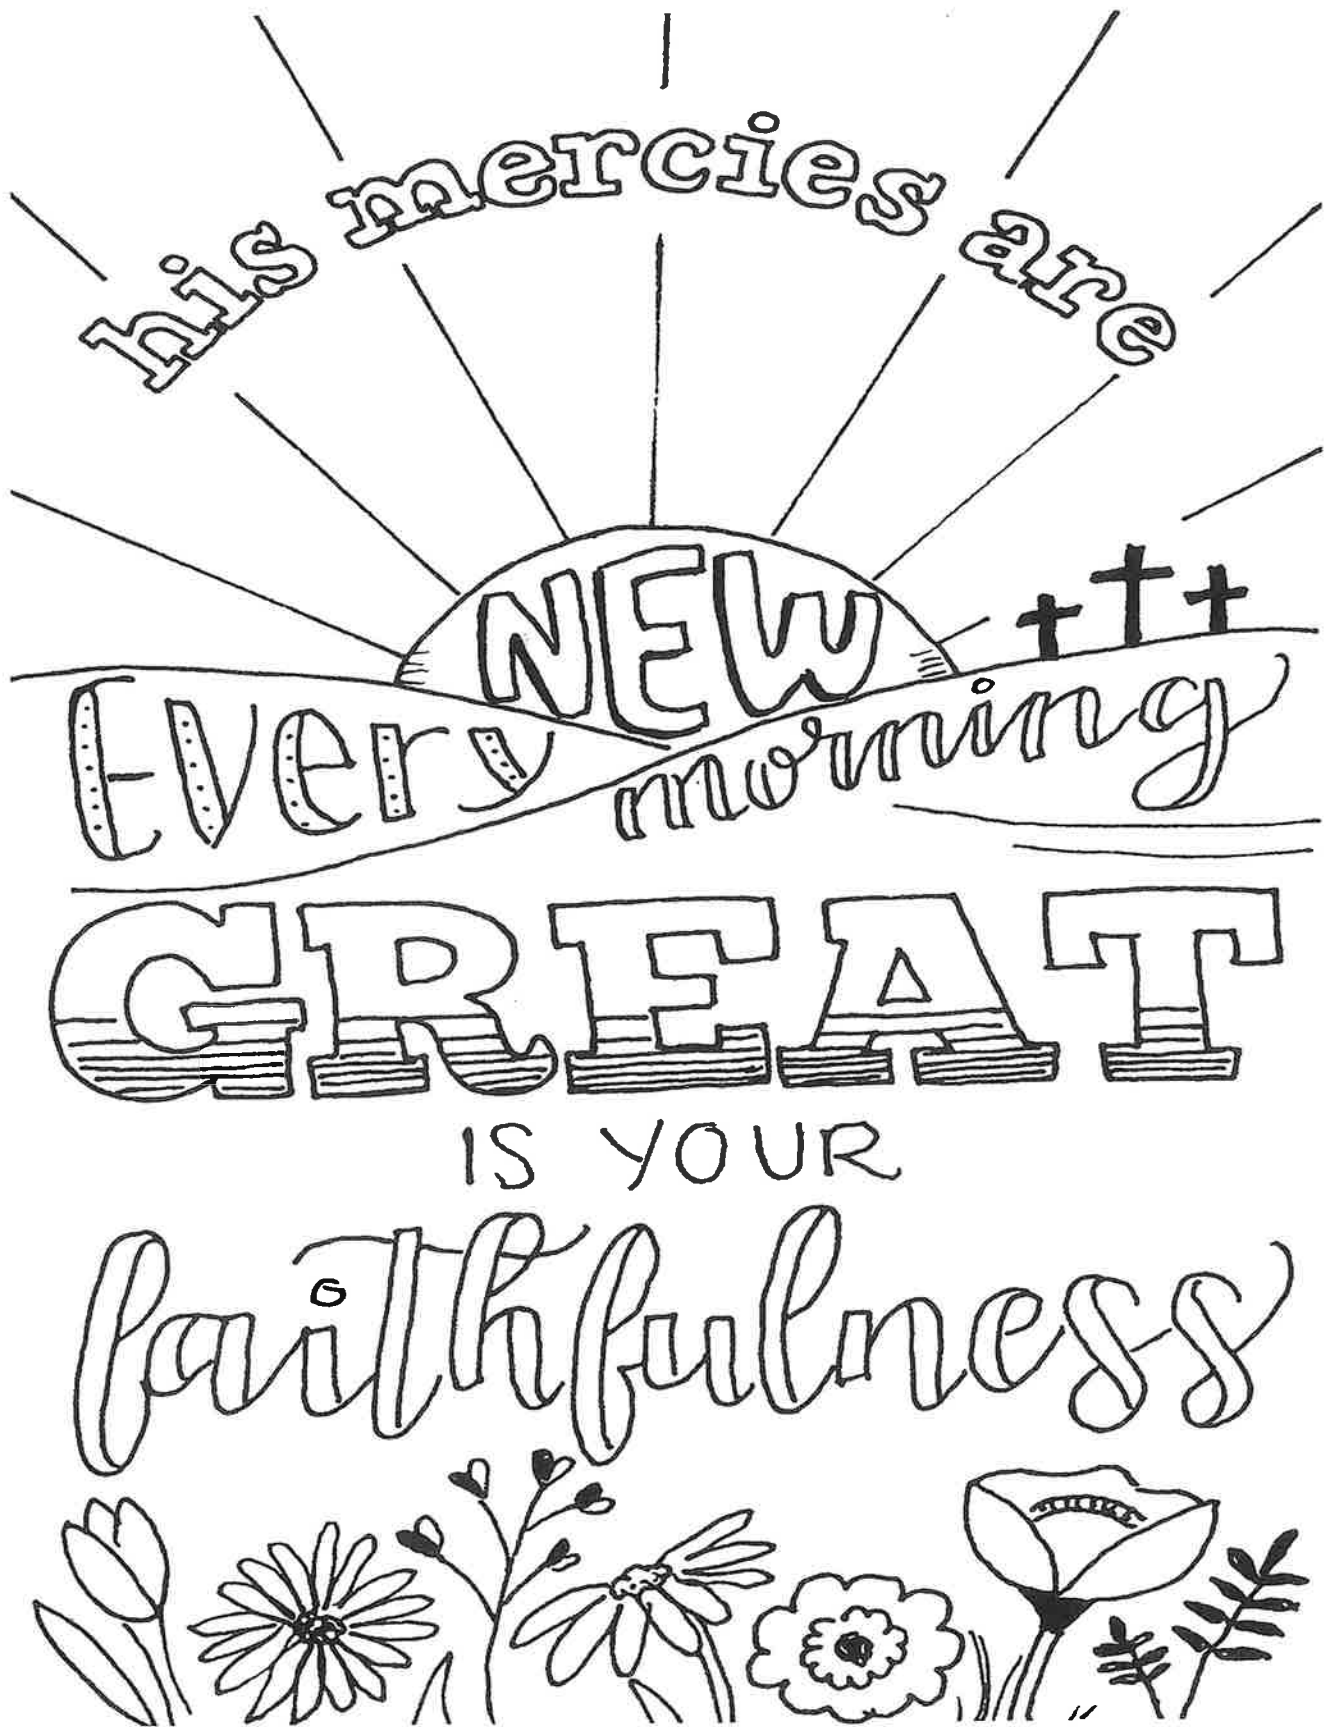 his mercies are
NEW
Every morning
GREAT
IS YOUR
faithfulness